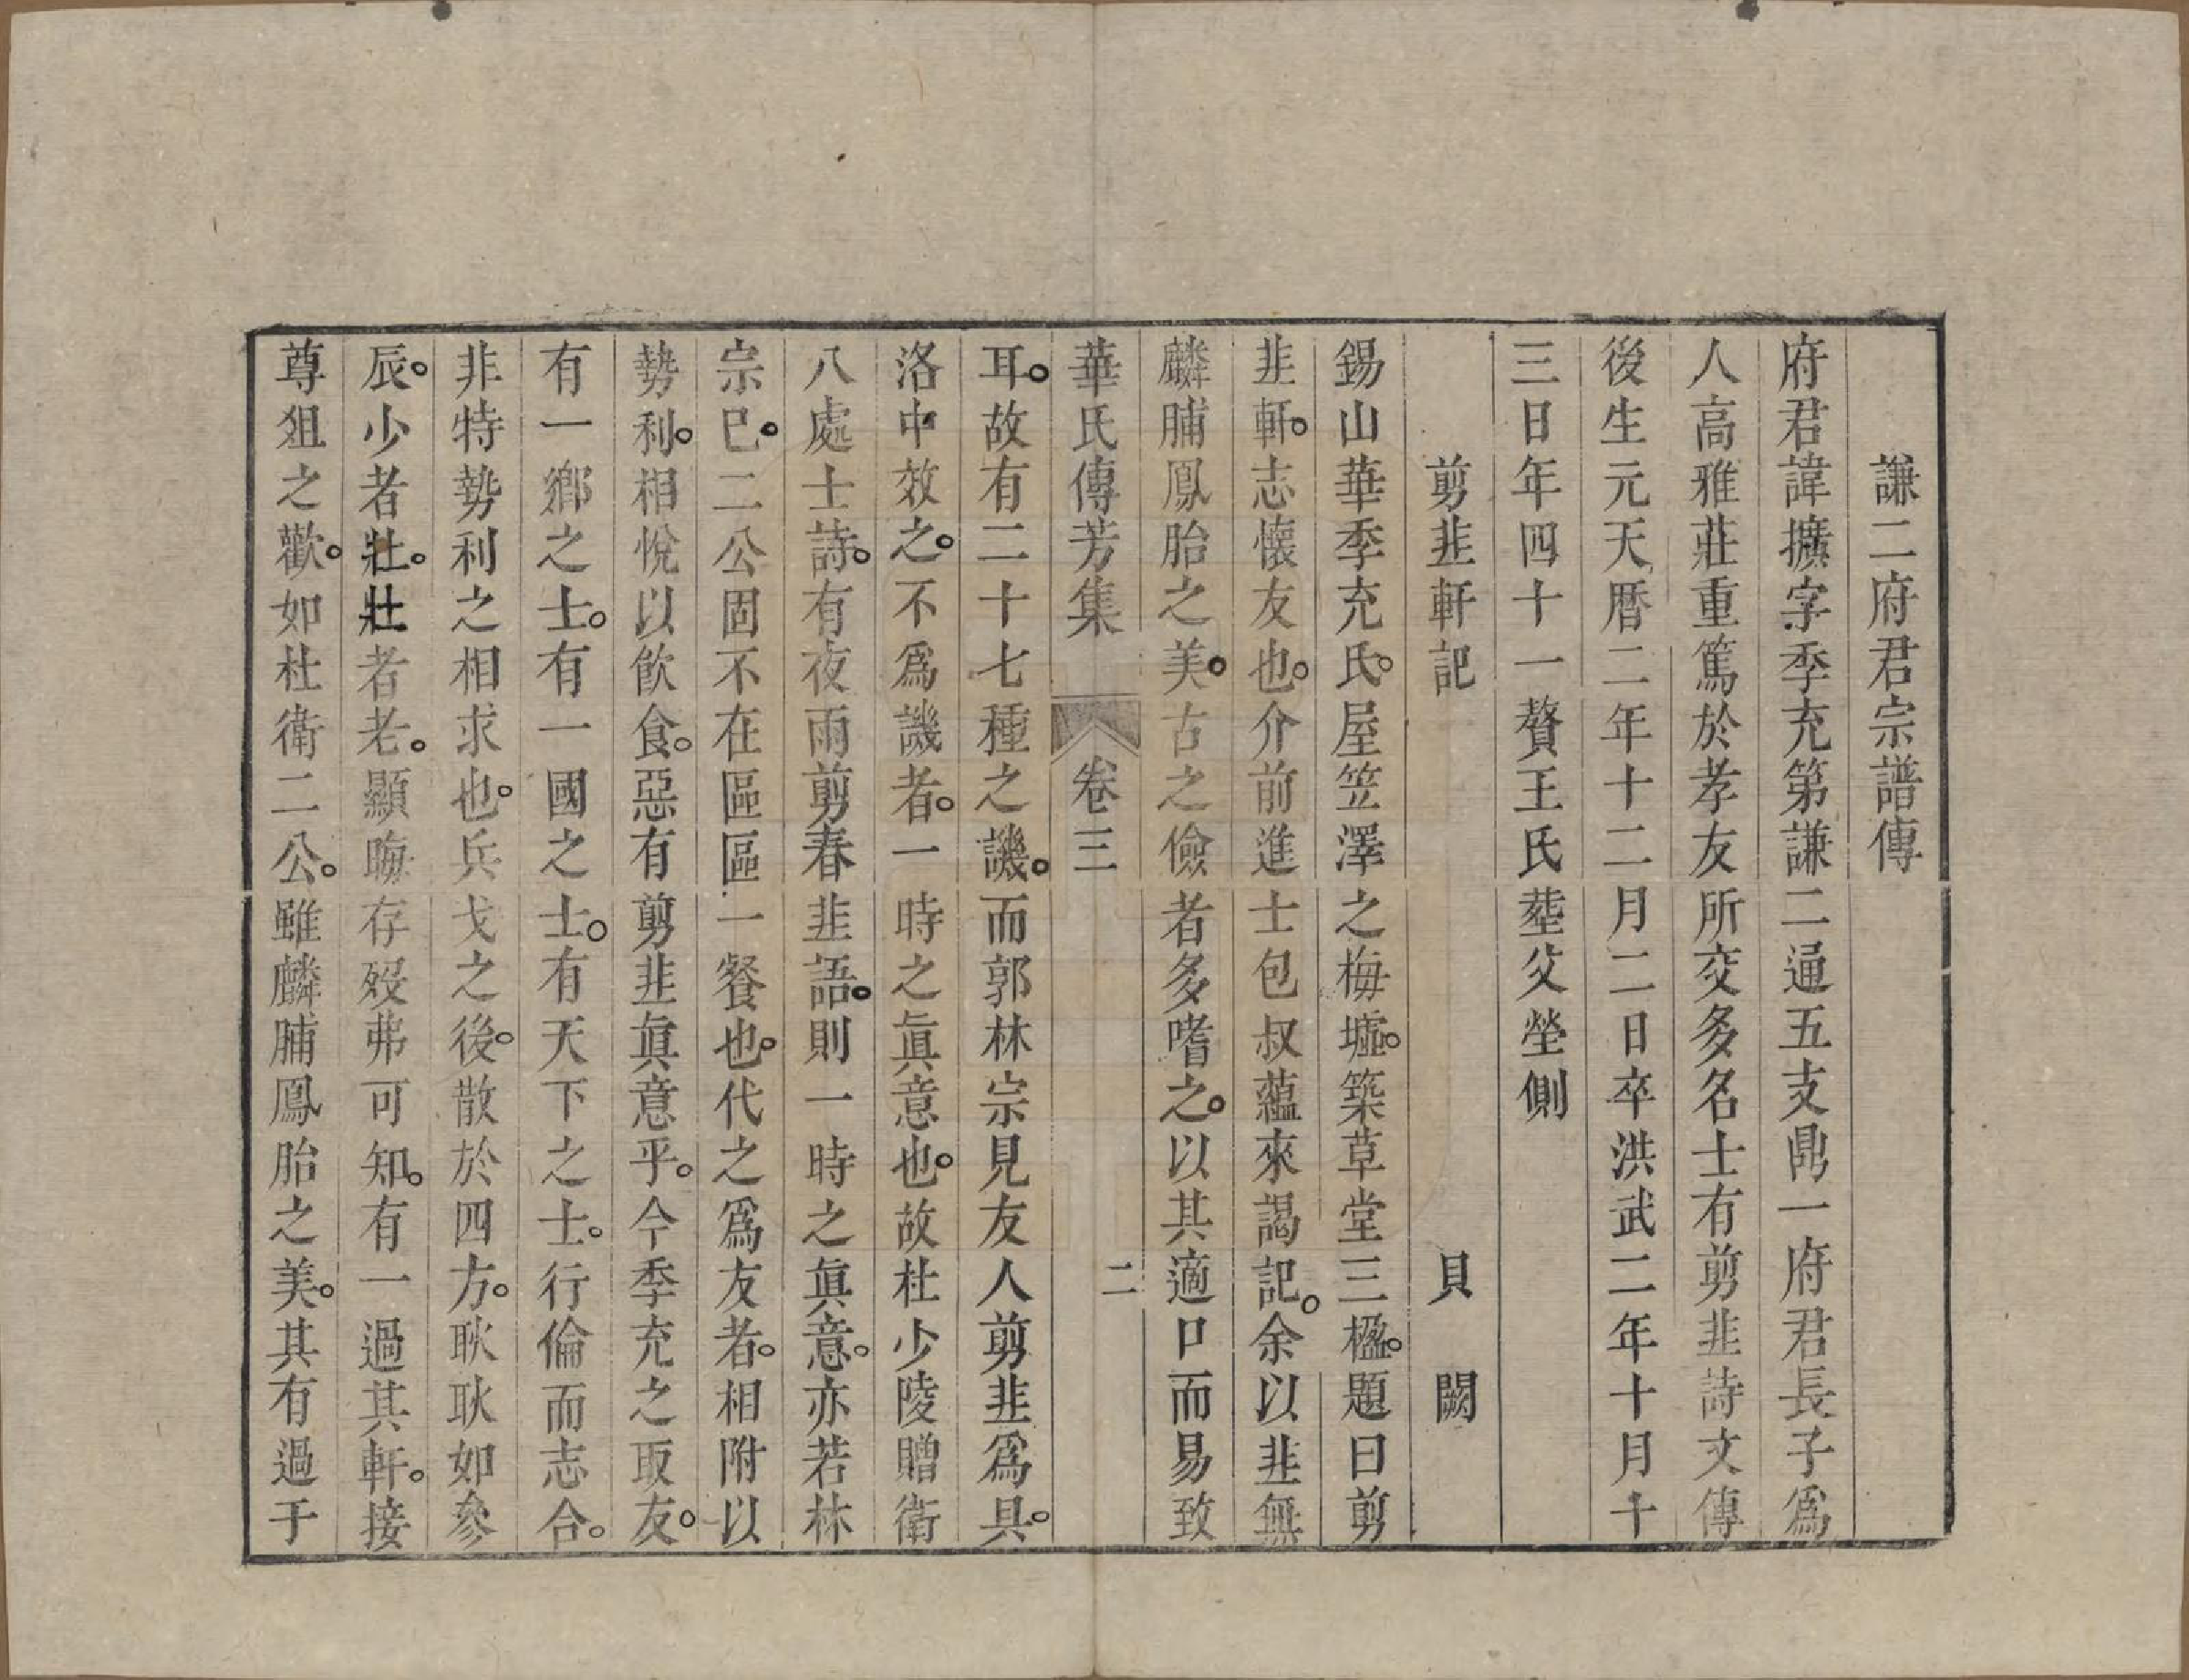 謙二府君宗譜傳
府君諱擴字季充第謙二通五支鼎一府君長子爲
人高雅莊重篤於孝友所交多名士有剪韭詩文傳
後生元天曆二年十二月二日卒洪武二年十月十
三日年四十一贅王氏塟父塋側
剪韭軒記　貝闕
錫山華季充氏。屋笠澤之梅墟。築草堂三楹。題曰剪
韭軒。志懷友也。介前進士包叔蘊來謁記。余以韭無
麟脯鳳胎之美。古之儉者多嗜之。以其適口而易致
華氏傳芳集　卷三　二
耳。故有二十七種之譏。而郭林宗見友人剪韭爲具。
洛中效之。不爲譏者。一時之眞意也。故杜少陵贈衛
八處士詩。有夜雨剪春韭語。則一時之眞意。亦若林
宗巳。二公固不在區區一餐也。代之爲友者。相附以
勢利。相悅以飮食。惡有剪韭眞意乎。今季充之取友。
有一鄉之士。有一國之士。有天下之士。行倫而志合。
非特勢利之相求也。兵戈之後。散於四方。耿耿如參
辰。少者壯。壯者老。顯晦存歿弗可知。有一過其軒。接
尊俎之歡。如杜衛二公。雖麟脯鳳胎之美。其有過于